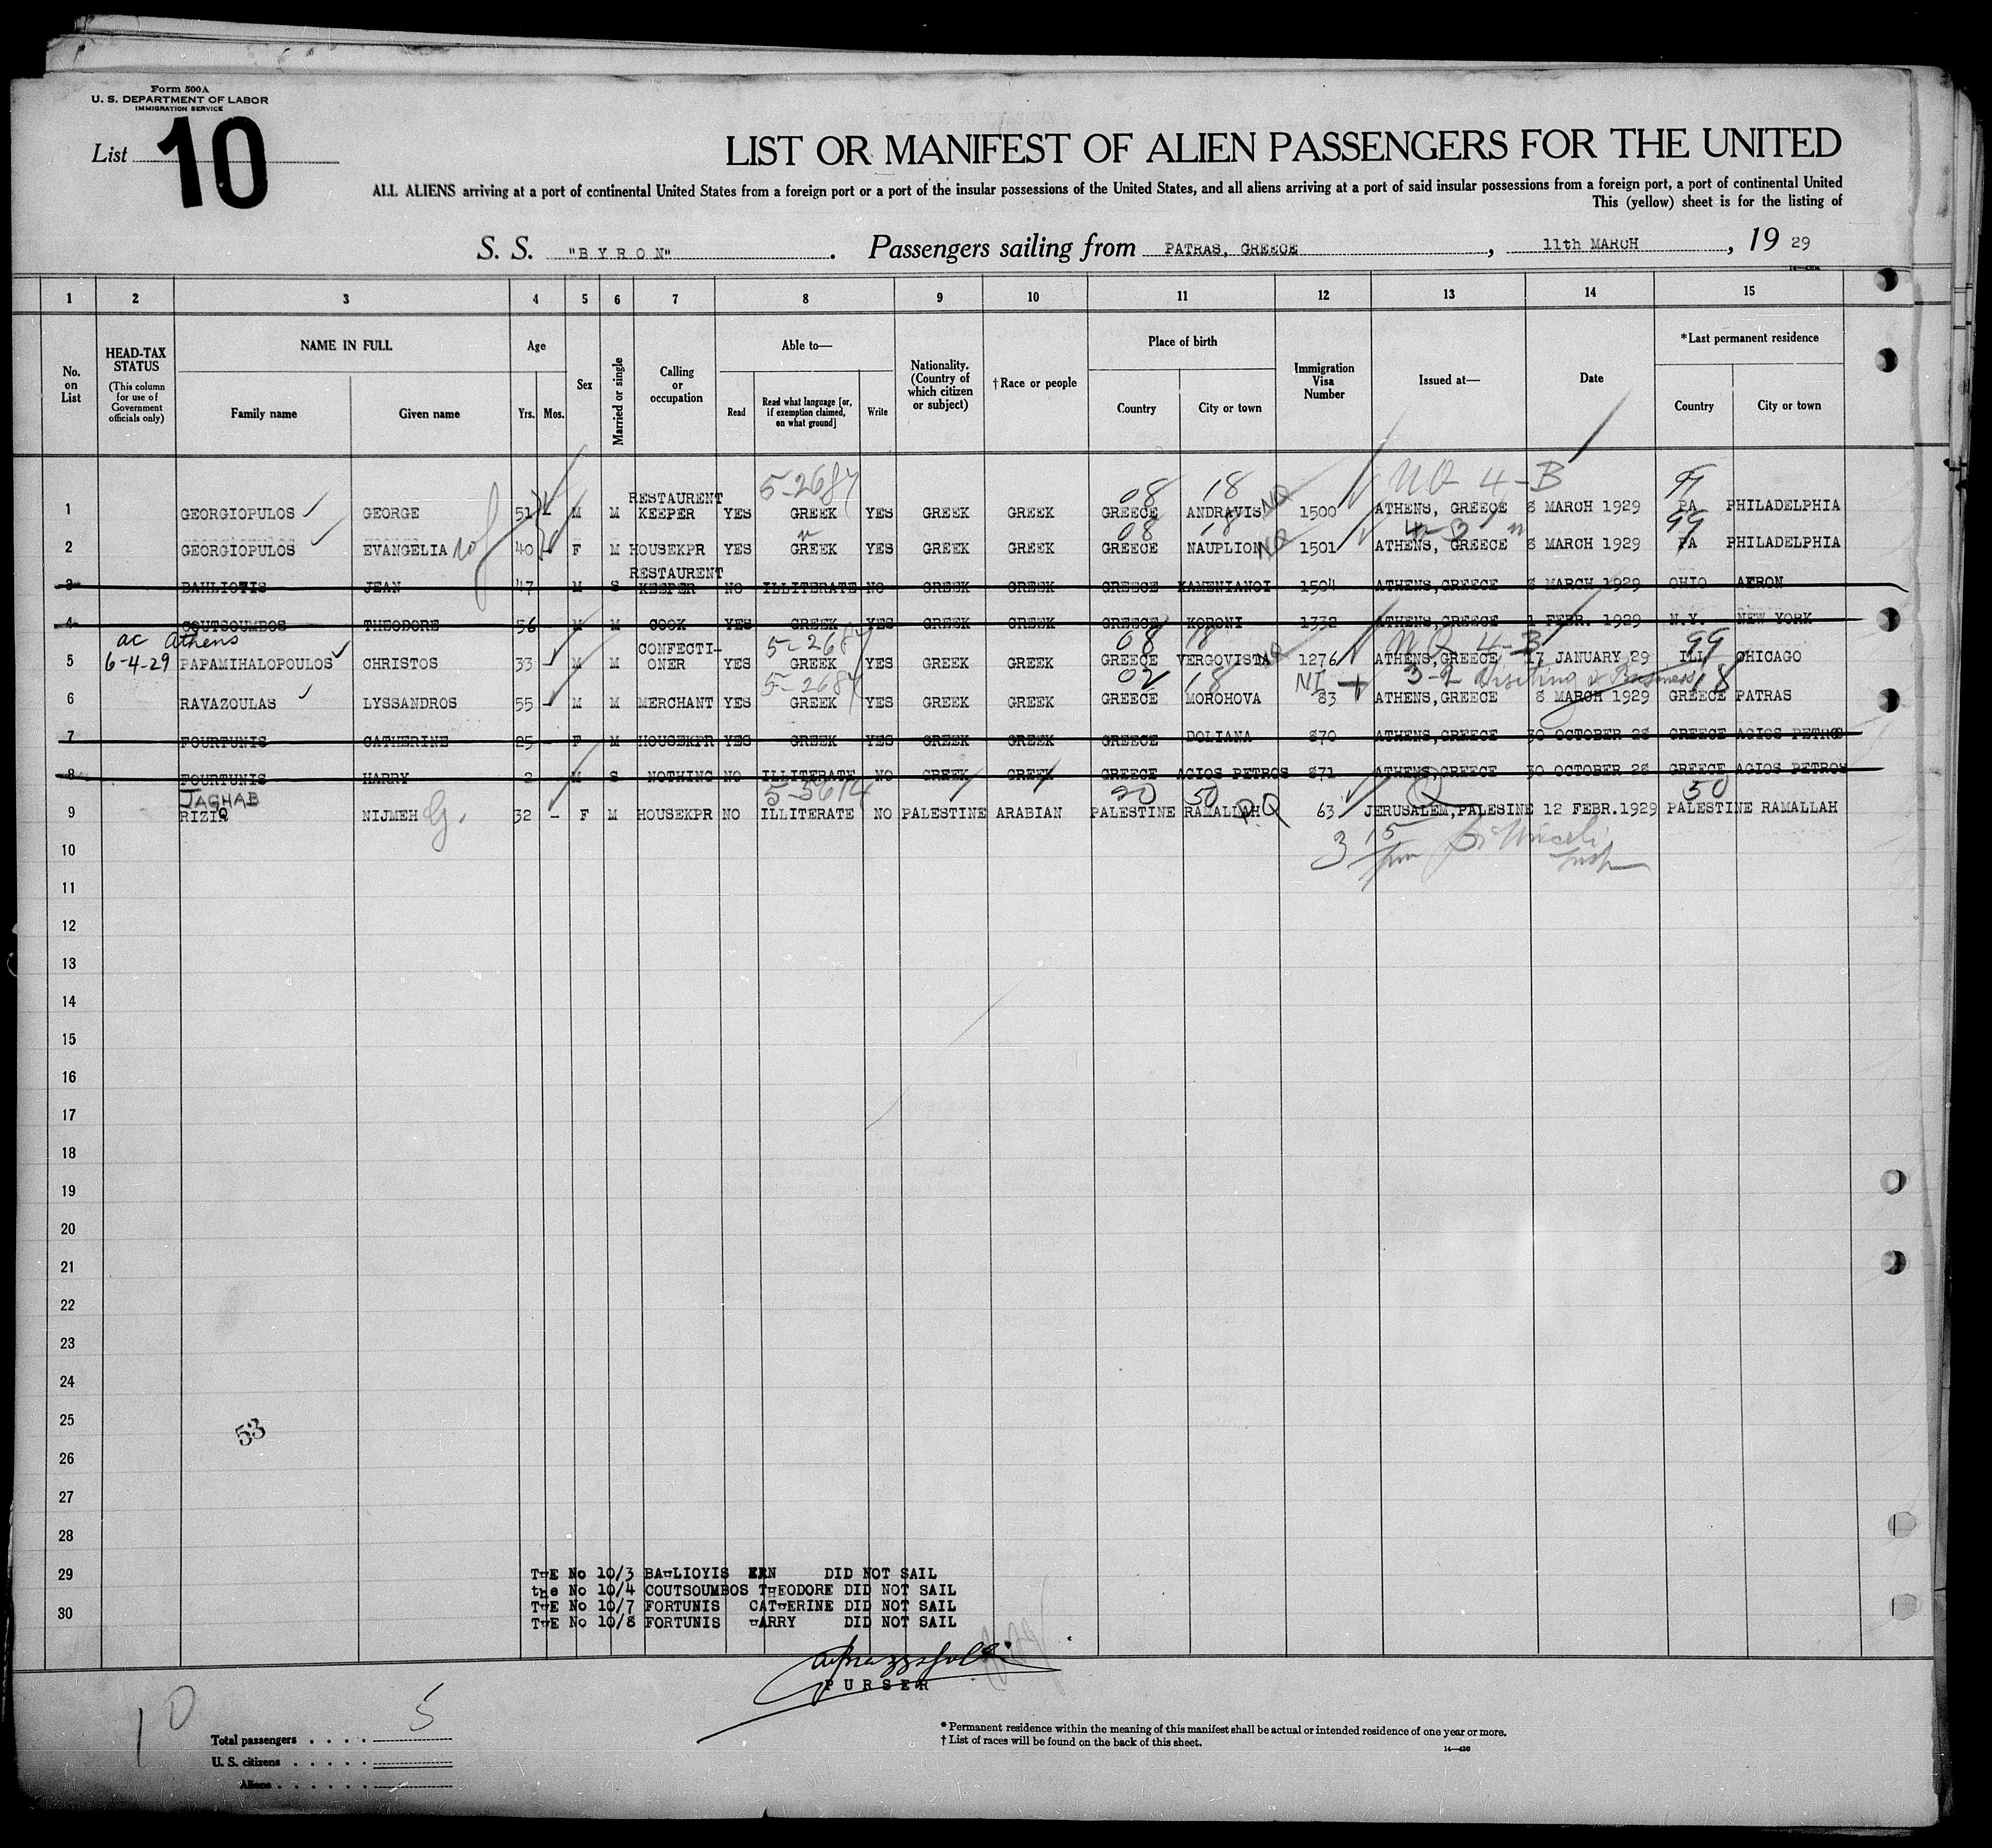 Form 500A
U. S. DEPARTMENT OF LABOR
IMMIGRATION SERVICE
List 10
LIST OR MANIFEST OF ALIEN PASSENGERS FOR THE UNITED
ALL ALIENS arriving at a port of continental United States from a foreign port or a port of the insular possessions of the United States, and all aliens arriving at a port of said insular possessions from a foreign port, a port of continental United
This (yellow) sheet is for the listing of
S. S. "BYRON". Passengers sailing from PATRAS, GREECE, 11th MARCH, 19 29
1 2 3 4 5 6 7 8 9 10 11 12 13 14 15
No. on List
HEAD-TAX STATUS (This column for use of Government officials only)
NAME IN FULL
Family name Given name
Age
Yrs. Mos.
Sex
Married or single
Calling or occupation
Able to—
Read Read what language [or, if exemption claimed, on what ground] Write
Nationality. (Country of which citizen or subject)
†Race or people
Place of birth
Country City or town
Immigration Visa Number
Issued at—
Date
*Last permanent residence
Country City or town
5-2687 08 18 NQ 4-B 99
1 GEORGIOPULOS GEORGE 51 M M RESTAURENT KEEPER YES GREEK YES GREEK GREEK GREECE ANDRAVIS NQ 1500 ATHENS, GREECE 8 MARCH 1929 PA PHILADELPHIA
08 18 99
2 GEORGIOPULOS EVANGELIA 40 F M HOUSEKPR YES GREEK YES GREEK GREEK GREECE NAUPLION NQ 1501 ATHENS, GREECE 8 MARCH 1929 PA PHILADELPHIA
3 DAHLIOTIS JEAN 47 M S RESTAURENT KEEPER NO ILLITERATE NO GREEK GREEK GREECE KAMENIANOI 1504 ATHENS,GREECE 8 MARCH 1929 OHIO AKRON
4 COUTSOUMBOS THEODORE 56 M M COOK YES GREEK YES GREEK GREEK GREECE KORONI 1332 ATHENS,GREECE 1 FEBR. 1929 N.Y. NEW YORK
ac Athens 5-2687 08 18 NQ 4-B 99
5 6-4-29 PAPAMIHALOPOULOS CHRISTOS 33 M M CONFECTI-ONER YES GREEK YES GREEK GREEK GREECE VERGOVISTA NQ 1276 ATHENS,GREECE 17 JANUARY 29 ILL CHICAGO
5-2687 02 18 NI 3-2 Visiting & Business 18
6 RAVAZOULAS LYSSANDROS 55 M M MERCHANT YES GREEK YES GREEK GREEK GREECE MOROHOVA 83 ATHENS,GREECE 8 MARCH 1929 GREECE PATRAS
7 FOURTUNIS CATHERINE 25 F M HOUSEKPR YES GREEK YES GREEK GREEK GREECE DOLIANA 870 ATHENS,GREECE 30 OCTOBER 28 GREECE AGIOS PETROS
8 FOURTUNIS HARRY 2 M S NOTHING NO ILLITERATE NO GREEK GREEK GREECE AGIOS PETROS 871 ATHENS,GREECE 30 OCTOBER 28 GREECE AGIOS PETROS
JAGHAB 5-5614 90 50 Q 50
9 RIZIK NIJMEH G. 32 - F M HOUSEKPR NO ILLITERATE NO PALESTINE ARABIAN PALESTINE RAMALLAH Q 63 JERUSALEM,PALESINE 12 FEBR.1929 PALESTINE RAMALLAH
10
11
12
13
14
15
16
17
18
19
20
21
22
23
24
25
53
26
27
28
29
30
THE No 10/3 BAHLIOYIS DID NOT SAIL
the No 10/4 COUTSOUMBOS THEODORE DID NOT SAIL
THE No 10/7 FORTUNIS CATHERINE DID NOT SAIL
THE No 10/8 FORTUNIS HARRY DID NOT SAIL
PURSER
10
Total passengers . . . . 5
U. S. citizens . . . . .
Aliens . . . . . .
* Permanent residence within the meaning of this manifest shall be actual or intended residence of one year or more.
† List of races will be found on the back of this sheet.
14—430